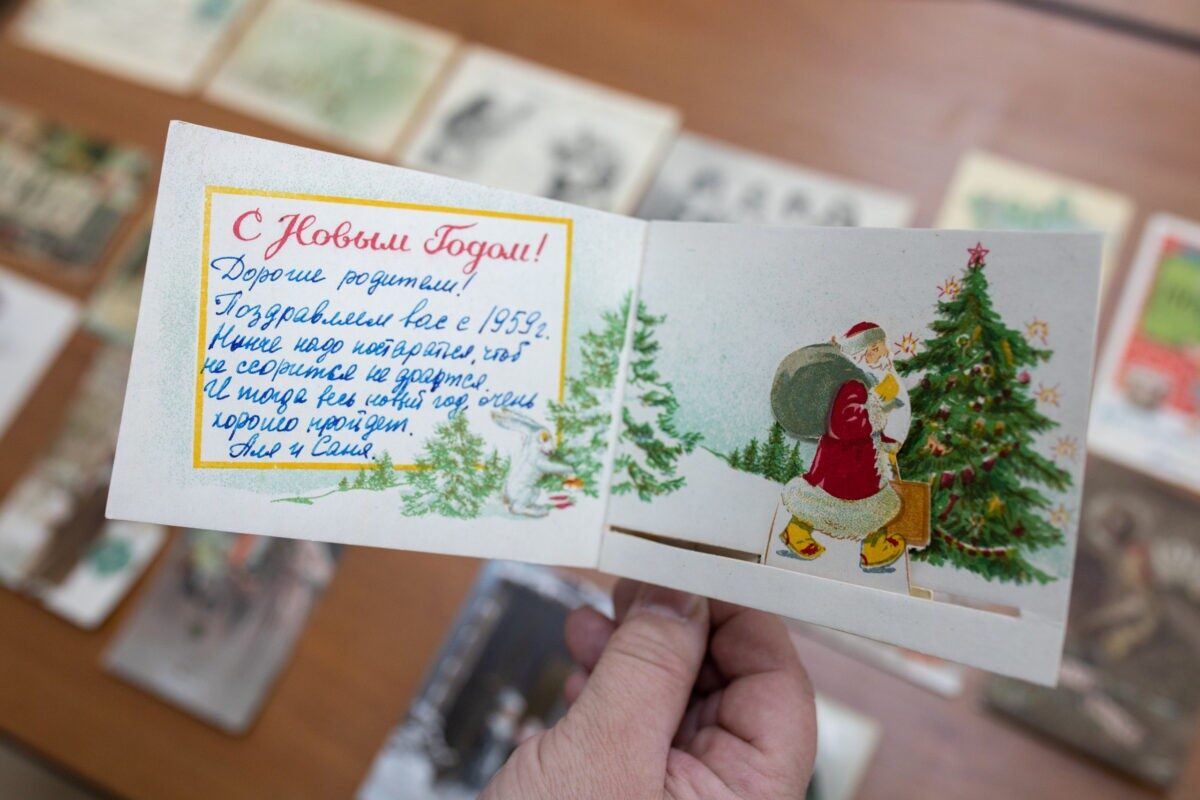 С Новым Годом!
Дорогие родители!
Поздравляем вас с 1959г.
Нынче надо постаратся, чтоб
не ссорится не драться.
И тогда весь новый год, очень
хорошо пройдет.
Аля и Саня.